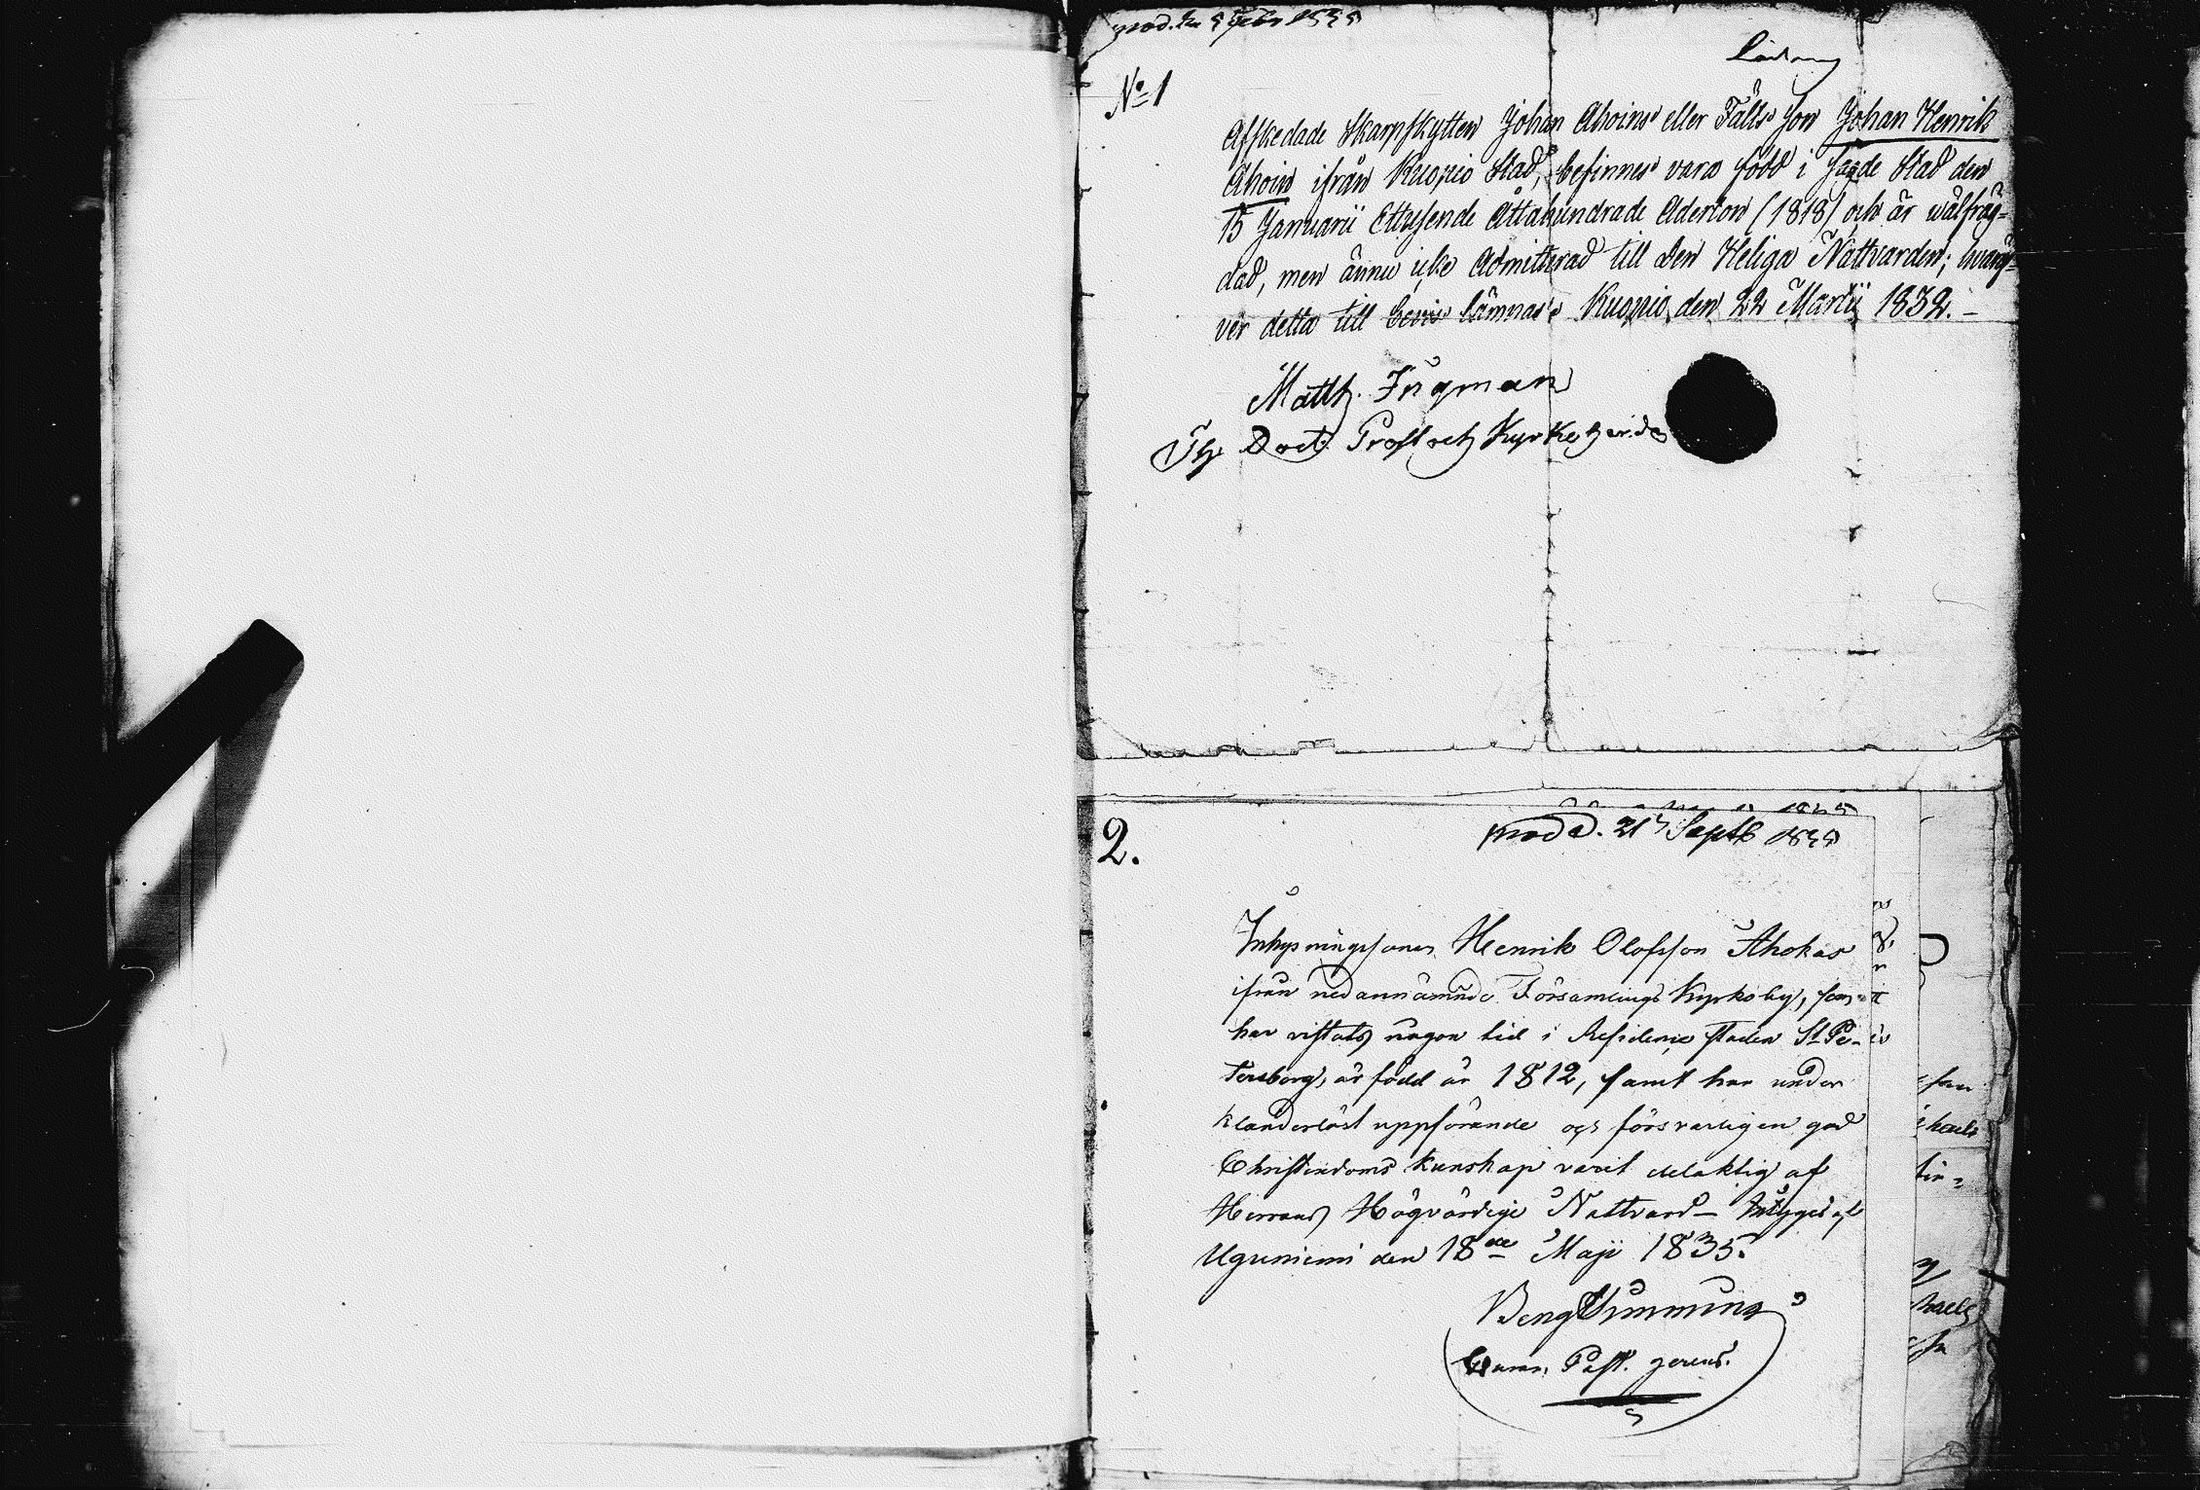 prod. den 9 Febr 1835
No 1
Afskedade Skarpskytten Johan Ahoins eller Fälts son Johan Henrik
Ahoin ifrån Kuopio Stad, befinnes vara född i sagde Stad den
15 Januarii Ettusende Åttahundrade Aderton (1818) och är wälfräg=
dad, men ännu icke Admitterad till den Heliga Nattvarden; hvaröf=
ver detta till bevis lämnas. Kuopio den 22 Martii 1832. –
Matth. Ingman
Th. Doct. Prost och Kyrkoherde
2.
prod d. 21 Septb 1835
Inhysningssonen Henrik Olofsson Ahokas
ifrån nedannämnde Församlings Kyrkoby, som
har vistats någon tid i Residence staden St Pe-
tersborg, är född år 1812, samt har under
klanderlöst uppförande och försvarligen god
Christendoms kunskap varit delaktig af
Herrans Högvärdige Nattvard – Intygas af
Uguniemi den 18de Maji 1835.
Beng
Past. gerens.